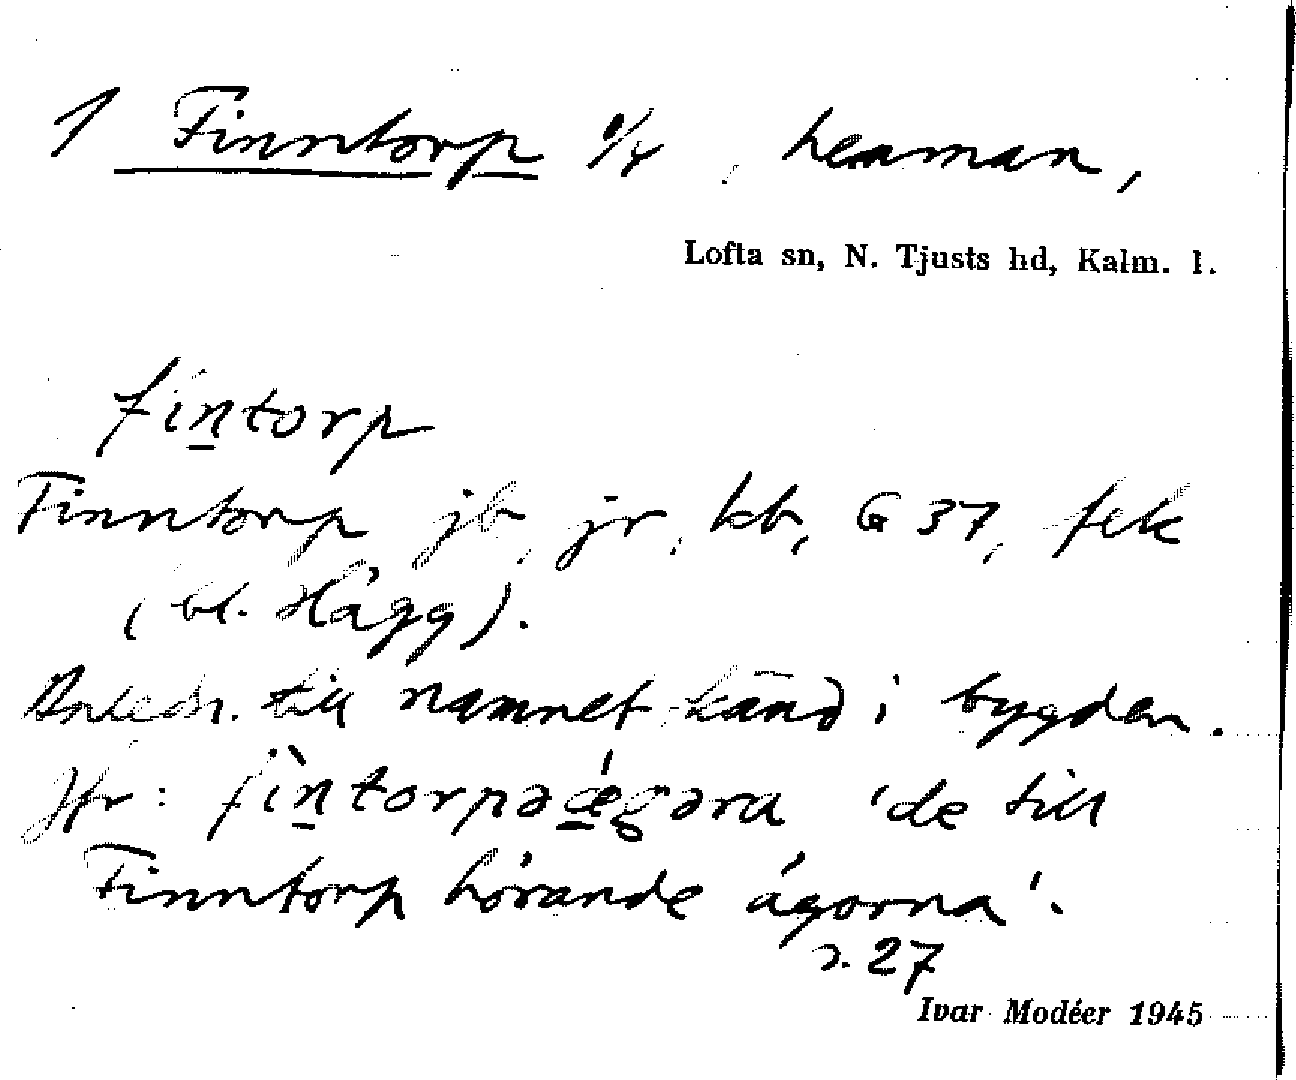 1 Finntorp 1/4, hemman,
Lofta sn, N. Tjusts hd, Kalm. l.
fintorp
Finntorp jb, jr, kb, G 37, fek
(bl. Hägg).
till namnet känd i bygden.
Jfr: fintorpəægəra 'de till
Finntorp hörande ägorna'.
s. 27
Ivar Modéer 1945